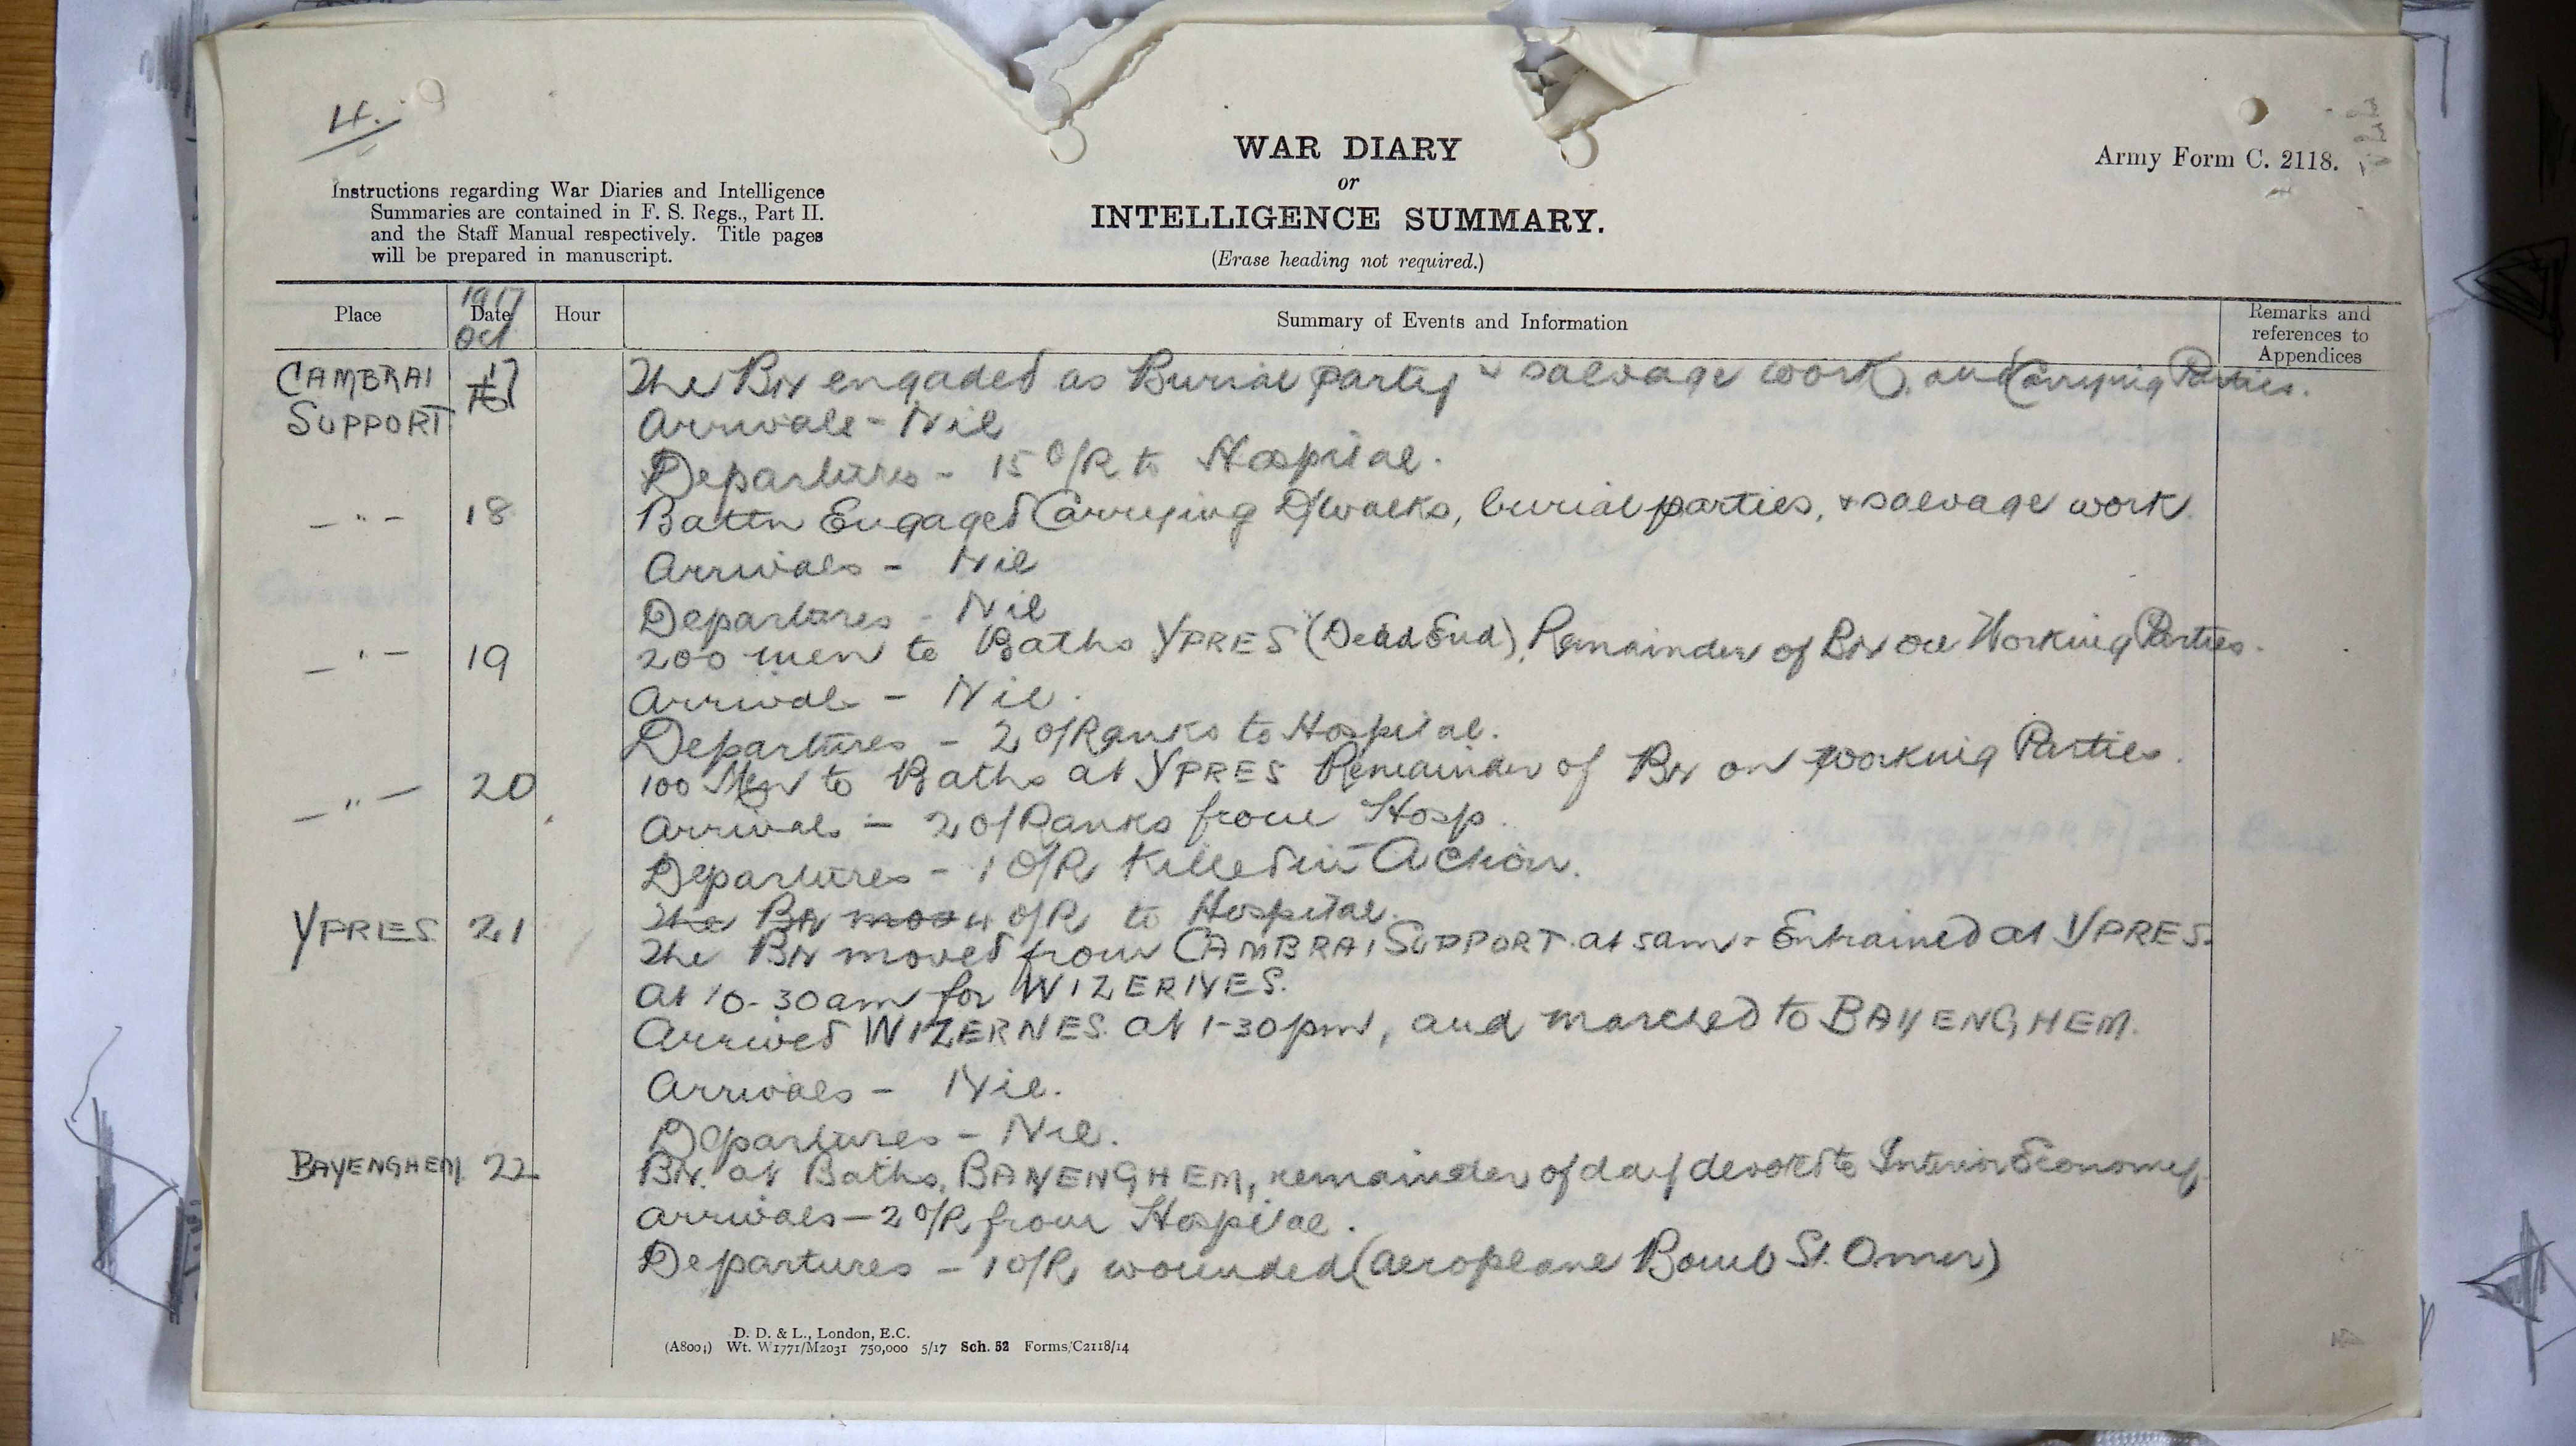 4.
WAR DIARY
or
INTELLIGENCE SUMMARY.
(Erase heading not required.)
Army Form C. 2118.
Instructions regarding War Diaries and Intelligence
Summaries are contained in F. S. Regs., Part II.
and the Staff Manual respectively. Title pages
will be prepared in manuscript.
Place
1917
Date
Oct
Hour
Summary of Events and Information
Remarks and
references to
Appendices
CAMBRAI SUPPORT 17 The Bn engaded as Burial party & salvage work, and Carrying Parties.
Arrivals - Nil
Departures - 15 O/R to Hospital.
- " - 18 Battn Engaged Carrying D/Walks, burial parties, & salvage work.
Arrivals - Nil
Departures - Nil
- " - 19 200 men to Baths YPRES (Dead End), Remainder of Bn on Working Parties.
Arrivals - Nil.
Departures - 2 O/Ranks to Hospital.
- " - 20 100 Men to Baths at YPRES Remainder of Bn on working Parties.
Arrivals - 2 O/Ranks from Hosp.
Departures - 1 O/R Killed in Action.
The Bn mov 4 O/R to Hospital.
YPRES 21 The Bn moved from CAMBRAI SUPPORT at 5am & Entrained at YPRES.
at 10-30am for WIZERNES.
Arrived WIZERNES at 1-30pm, and marched to BAYENGHEM.
Arrivals - Nil.
Departures - Nil.
BAYENGHEM. 22 Bn. at Baths, BAYENGHEM, remainder of day devoted to Interior Economy
Arrivals - 2 O/R from Hospital.
Departures - 1 O/R wounded (Aeroplane Bomb St. Omer)
D. D. & L., London, E.C.
(A8004) Wt. W1771/M2031 750,000 5/17 Sch. 52 Forms/C2118/14